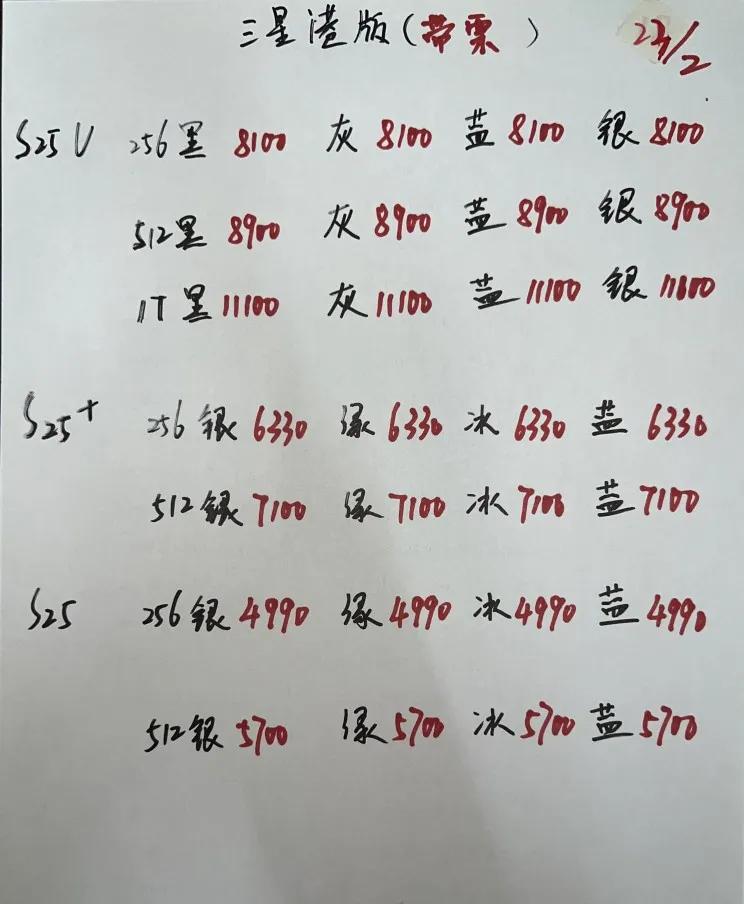 三星港版(带票) 23/2
S25U 256黑 8100 灰 8100 蓝 8100 银 8100
512黑 8900 灰 8900 蓝 8900 银 8900
1T 黑 11100 灰 11100 蓝 11100 银 11100
S25+ 256银 6330 绿 6330 冰 6330 蓝 6330
512银 7100 绿 7100 冰 7100 蓝 7100
S25 256银 4990 绿 4990 冰 4990 蓝 4990
512银 5700 绿 5700 冰 5700 蓝 5700